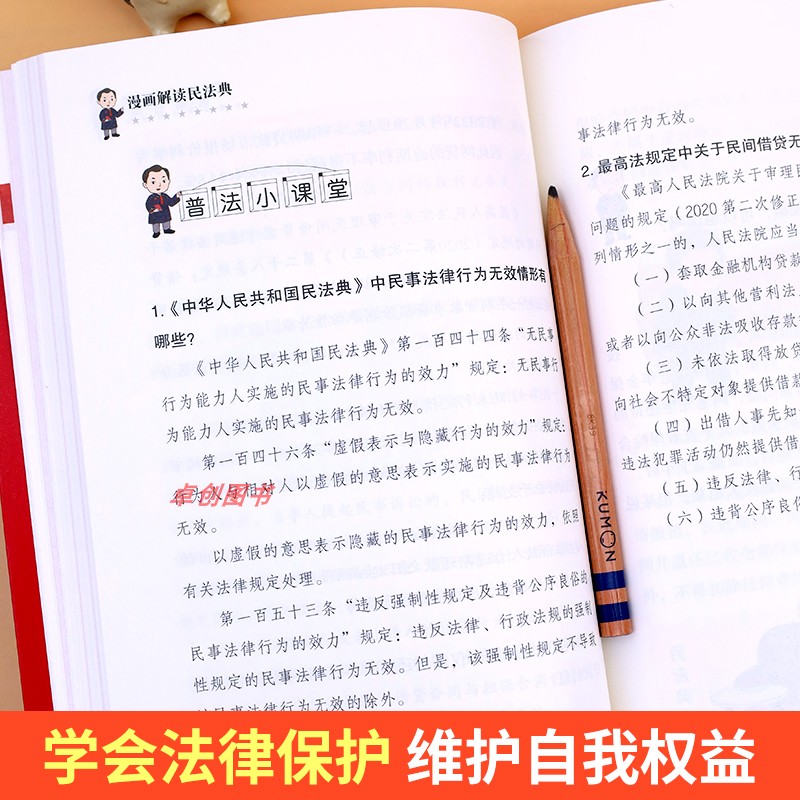 漫画解读民法典
普法小课堂
1.《中华人民共和国民法典》中民事法律行为无效情形有
哪些?
《中华人民共和国民法典》第一百四十四条“无民事
行为能力人实施的民事法律行为的效力”规定:无民事行
为能力人实施的民事法律行为无效。
第一百四十六条“虚假表示与隐藏行为的效力”规定:
行为人与相对人以虚假的意思表示实施的民事法律行为
无效。
卓创图书
以虚假的意思表示隐藏的民事法律行为的效力,依照
有关法律规定处理。
第一百五十三条“违反强制性规定及违背公序良俗的
民事法律行为的效力”规定:违反法律、行政法规的强制
性规定的民事法律行为无效。但是,该强制性规定不导致
民事法律行为无效的除外。
事法律行为无效。
2.最高法规定中关于民间借贷无
《最高人民法院关于审理民
问题的规定(2020第二次修正
列情形之一的,人民法院应当
(一)套取金融机构贷款
(二)以向其他营利法人
或者以向公众非法吸收存款
(三)未依法取得放贷
向社会不特定对象提供借款
(四)出借人事先知
违法犯罪活动仍然提供借
(五)违反法律、行
(六)违背公序良俗
KUMON
学会法律保护 维护自我权益